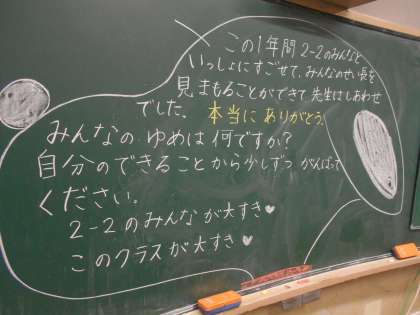 この1年間2-2のみんなと
いっしょにすごせて、みんなのせい長を
見まもることができて先生はしあわせ
でした。 本当にありがとう。
みんなのゆめは何ですか?
自分のできることから少しずつがんばって
ください。
2-2のみんなが大すき♥
このクラスが大すき♥